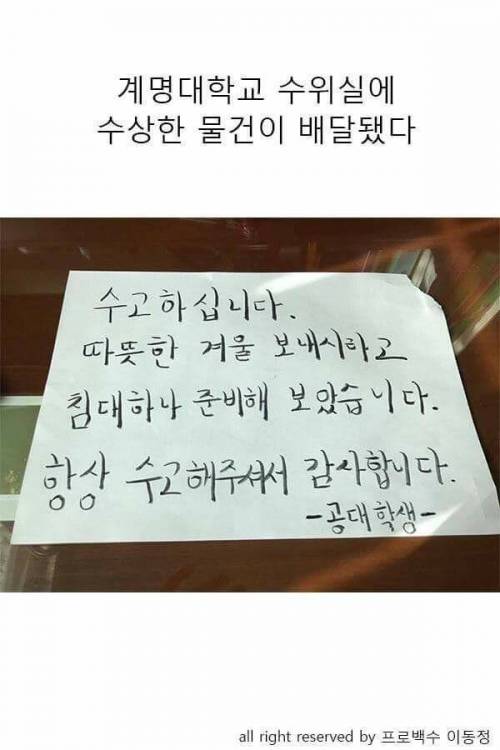 계명대학교 수위실에
수상한 물건이 배달됐다
수고하십니다.
따뜻한 겨울 보내시라고
침대하나 준비해 보았습니다.
항상 수고해주셔서 감사합니다.
-공대학생-
all right reserved by 프로백수 이동정